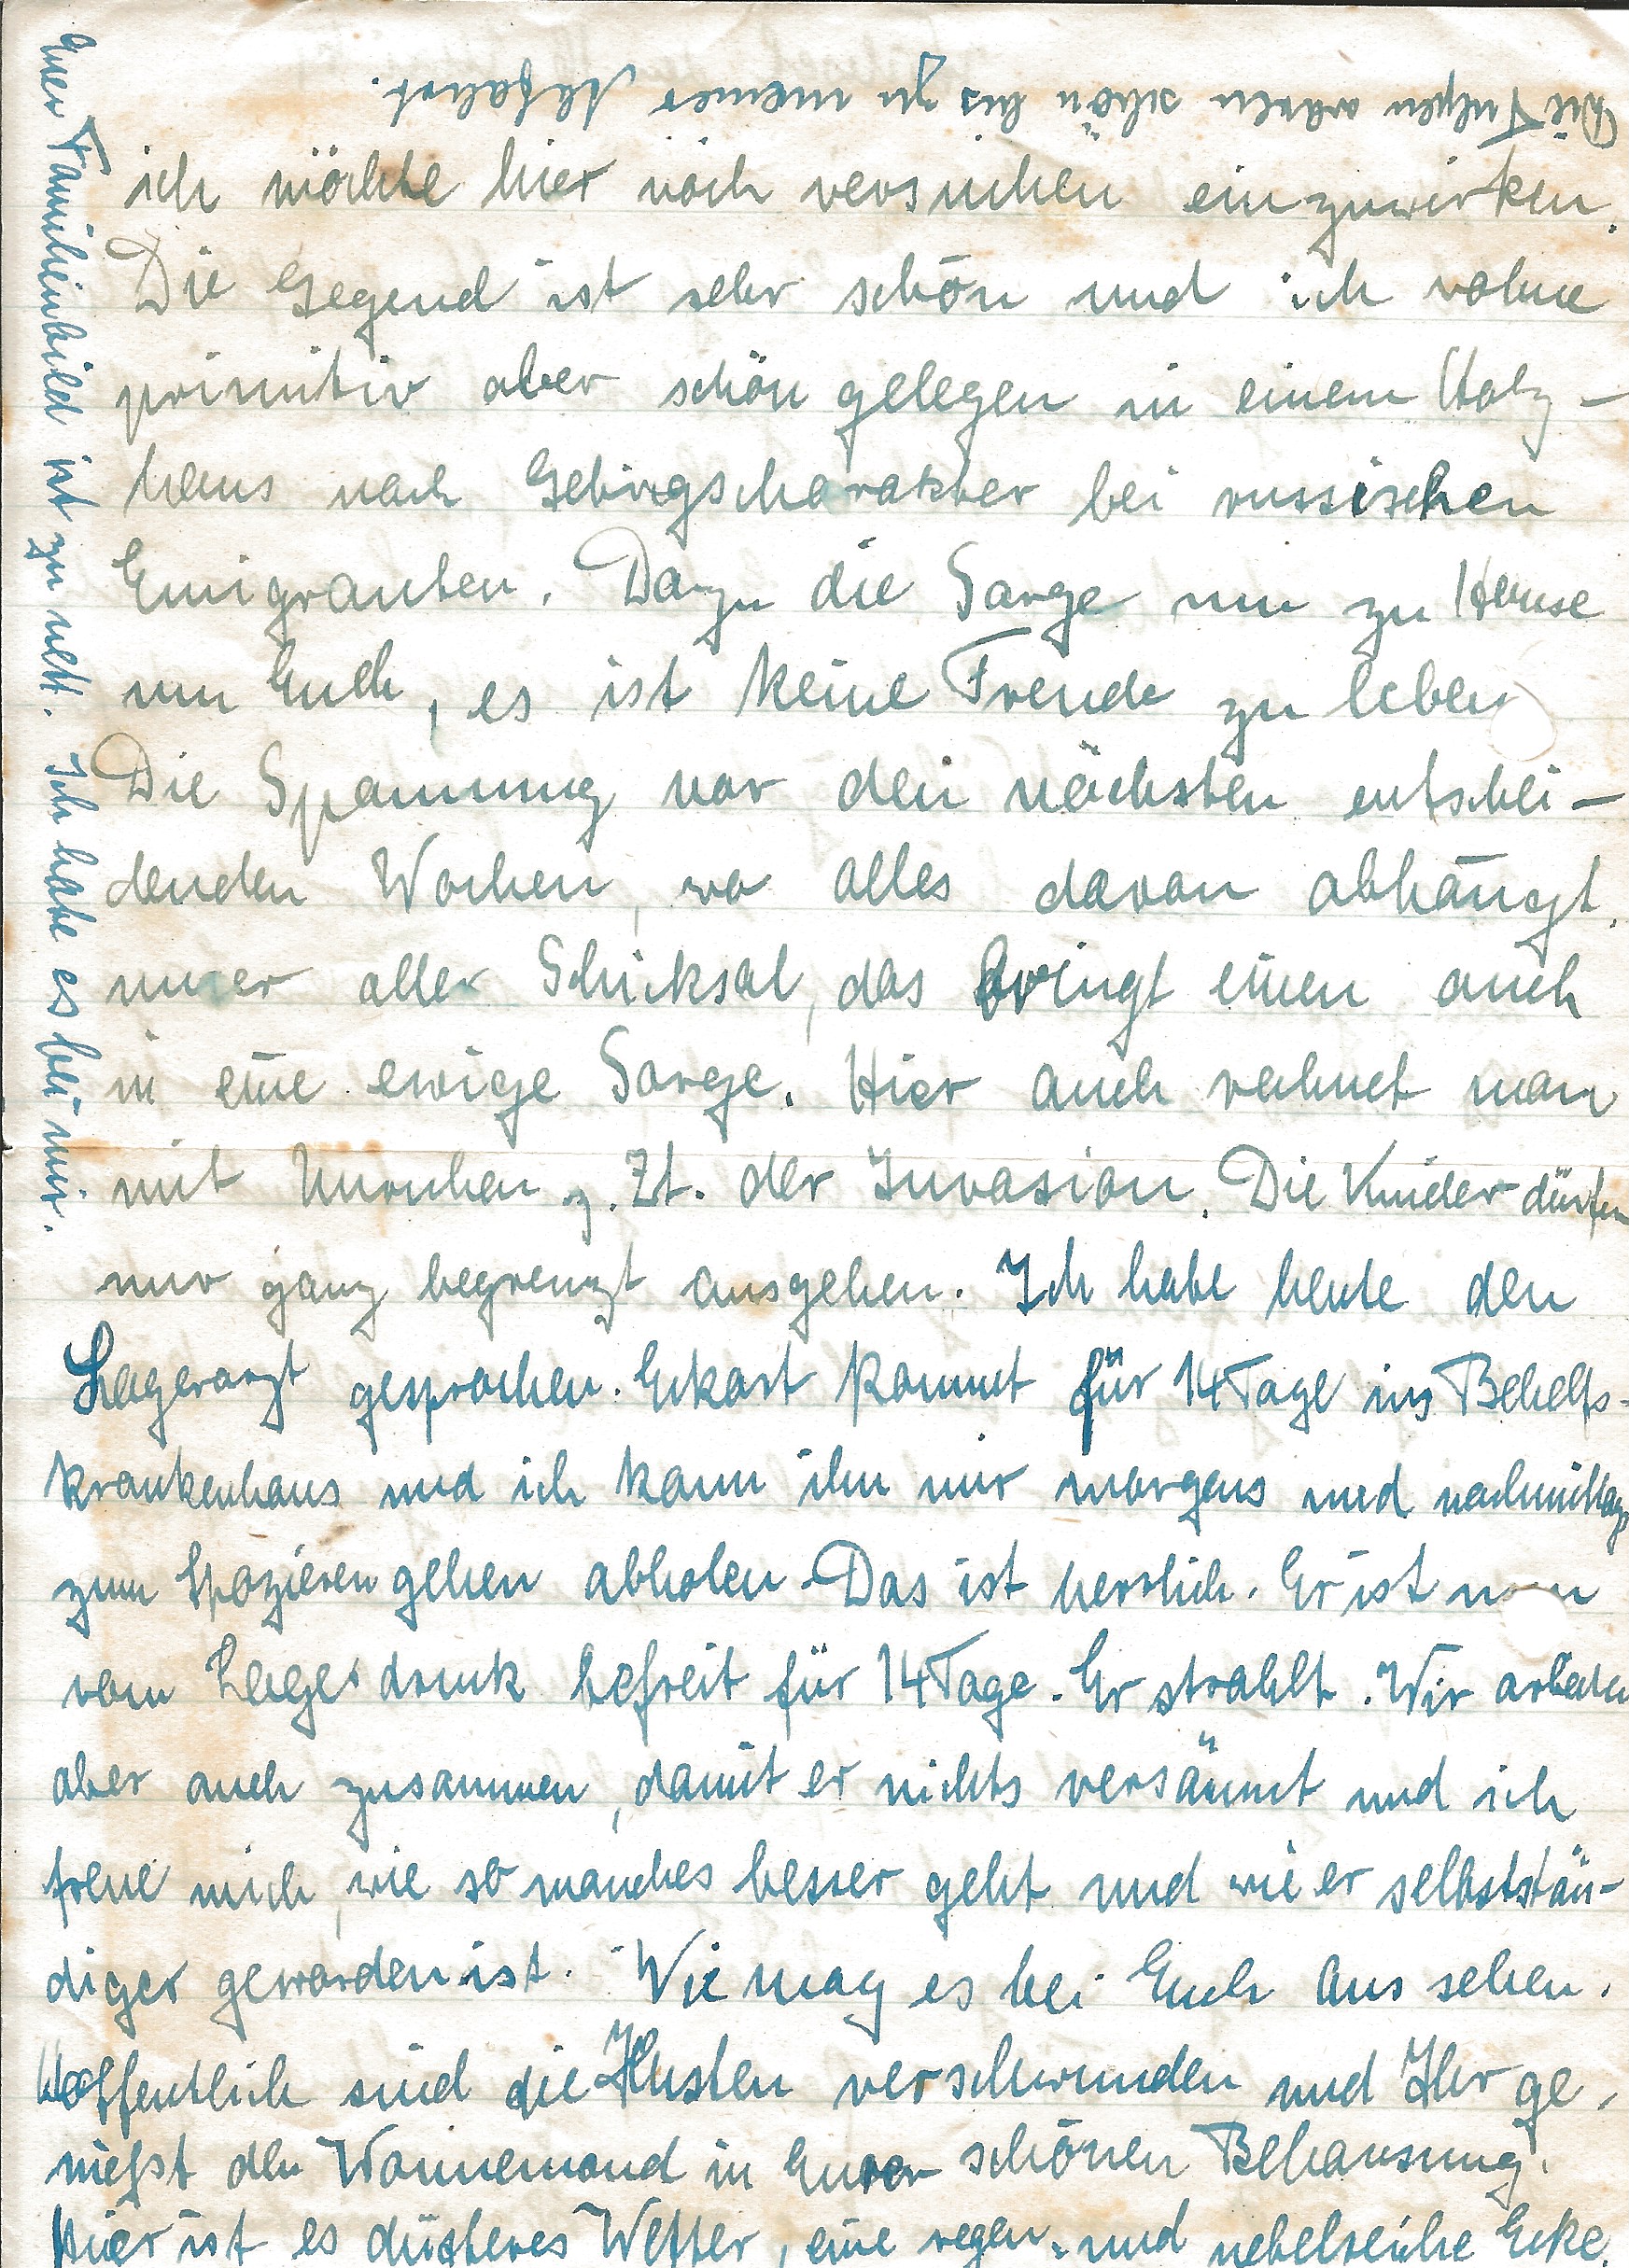 Die Tulpen waren schön bis zu meiner Abfahrt.
ich möchte hier noch versuchen einzuwirken.
Die Gegend ist sehr schön und ich wohne
primitiv aber schön gelegen in einem Holz-
haus nach Gebirgscharakter bei russischen
Emigranten. Dazu die Sorge nun zu Hause
um Euch, es ist keine Freude zu leben
Die Spannung vor den nächsten entschei-
denden Wochen, wo alles davon abhängt,
unser aller Schicksal, das bringt einen auch
in eine ewige Sorge. Hier auch rechnet man
mit Unruhen z. Zt. der Invasion. Die Kinder dürfen
nur ganz begrenzt ausgehen. Ich habe heute den
Lagerarzt gesprochen. Eckart kommt für 14 Tage ins Behelfs-
krankenhaus und ich kann ihn mir morgens und nachmittags
zum Spazierengehen abholen. Das ist herrlich. Er ist nun
vom Lagerdruck befreit für 14 Tage. Er strahlt. Wir arbeiten
aber auch zusammen, damit er nichts versäumt und ich
freue mich, wie so manches besser geht und wie er selbststän-
diger geworden ist. Wie mag es bei Euch aussehen.
Hoffentlich sind die Husten verschwunden und Ihr ge-
nießt den Wonnemond in Eurer schönen Behausung.
Hier ist es düsteres Wetter, eine regen- und nebelreiche Ecke.
Euer Familienbild ist zu nett. Ich habe es bei mir.